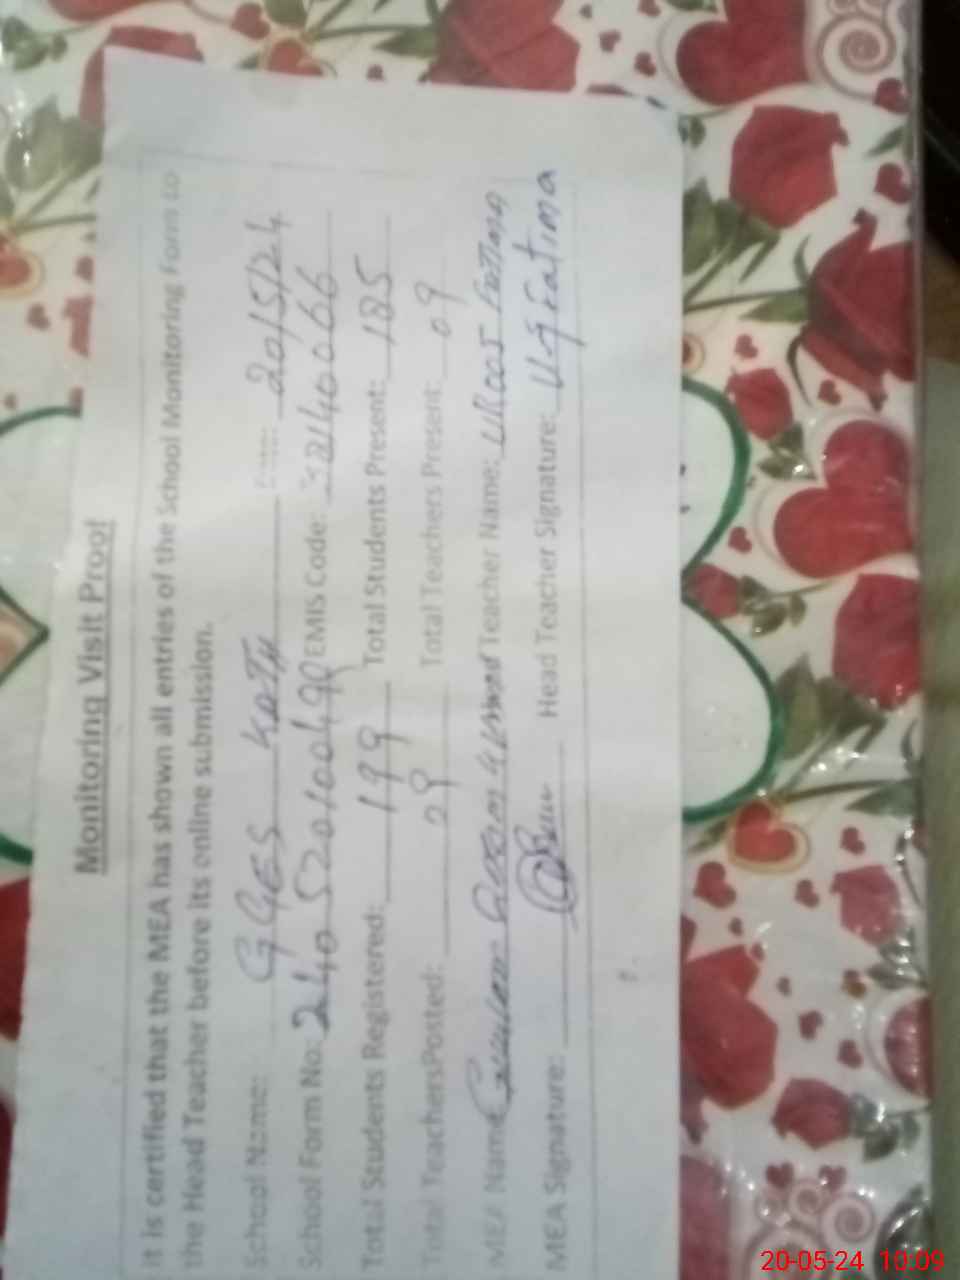 Monitoring Visit Proof
It is certified that the MEA has shown all entries of the School Monitoring Form to
the Head Teacher before its online submission.
School Name: GGES KOTH Date: 20/5/24
School Form No: 240520100490 EMIS Code: 32140066
Total Students Registered: 199 Total Students Present: 185
Total TeachersPosted: 09 Total Teachers Present: 09
MEA Name Teacher Name: UROOS Fatima
MEA Signature: Head Teacher Signature: Fatima
20-05-24 10:09